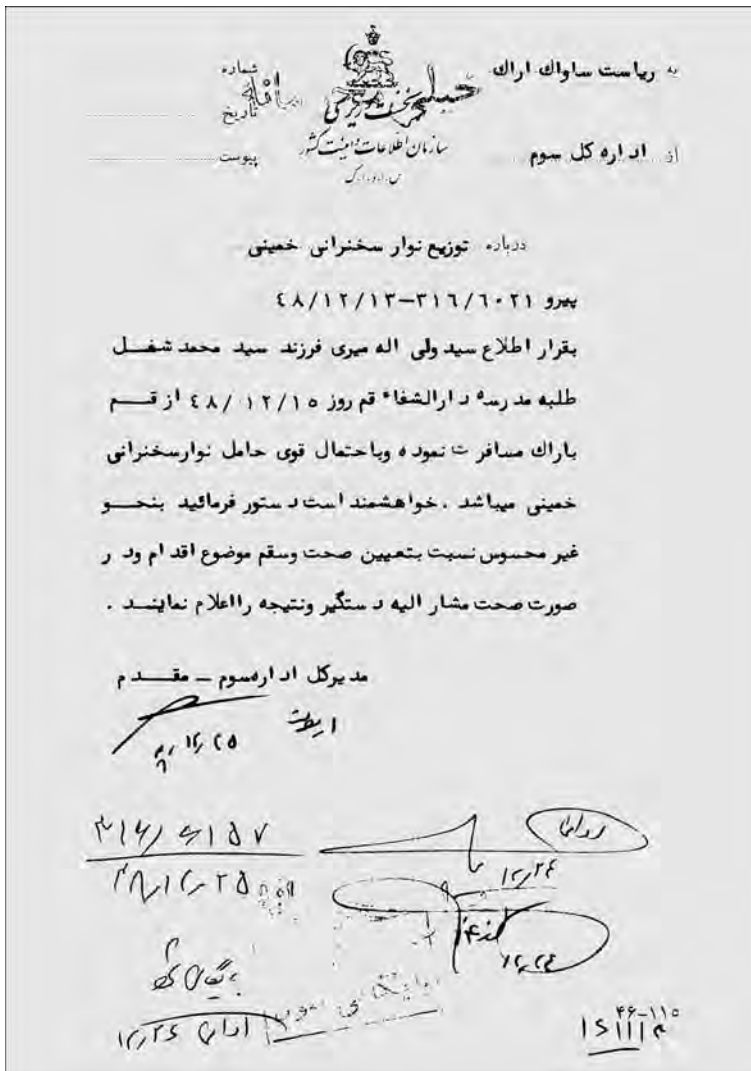 به ریاست ساواک اراک
شماره
تاریخ
نخست وزیری
سازمان اطلاعات و امنیت کشور
س.ا.و.ا.ک
از اداره کل سوم
پیوست
درباره توزیع نوار سخنرانی خمینی
پیرو ۳۱۶/۶۰۲۱-۴۸/۱۲/۱۳
بقرار اطلاع سید ولی اله میری فرزند سید محمد شغل
طلبه مدرسه دارالشفاء قم روز ۴۸/۱۲/۱۵ از قم
باراک مسافرت نموده وباحتمال قوی حامل نوارسخنرانی
خمینی میباشد . خواهشمند است دستور فرمائید بنحو
غیر محسوس نسبت بتعیین صحت وسقم موضوع اقدام ودر
صورت صحت مشارالیه دستگیر ونتیجه رااعلام نمایند .
مدیرکل اداره سوم - مقدم
۳۱۶/۶۱۵۷
۴۸/۱۲/۲۵
۱۲/۲۴
۱۲/۲۶
۴۶-۱۱۵